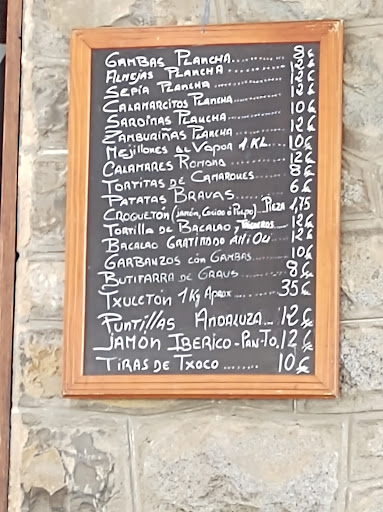 GAMBAS PLANCHA ........ 8€
ALMEJAS PLANCHA ........ 12€
SEPIA PLANCHA ........ 12€
CALAMARCITOS PLANCHA ........ 12€
SARDINAS PLANCHA ........ 10€
ZAMBURIÑAS PLANCHA ........ 12€
MEJILLONES AL VAPOR 1 KL. ... 10€
CALAMARES ROMANA ........ 12€
TORTITAS DE CAMARONES ........ 8€
PATATAS BRAVAS ........ 6€
CROQUETON (JAMÓN, COCIDO ó PULPO) .. PIEZA 1,75
TORTILLA DE BACALAO, ........ 12€
BACALAO GRATINADO ALIOLI ........ 12€
GARBANZOS CON GAMBAS ........ 10€
BUTIFARRA DE GRAUS ........ 8€
TXULETÓN 1 KG APROX ........ 35€
PUNTILLAS ANDALUZA ... 12€
JAMÓN IBERICO - PAN-TO. 12€
TIRAS DE TXOCO ........ 10€